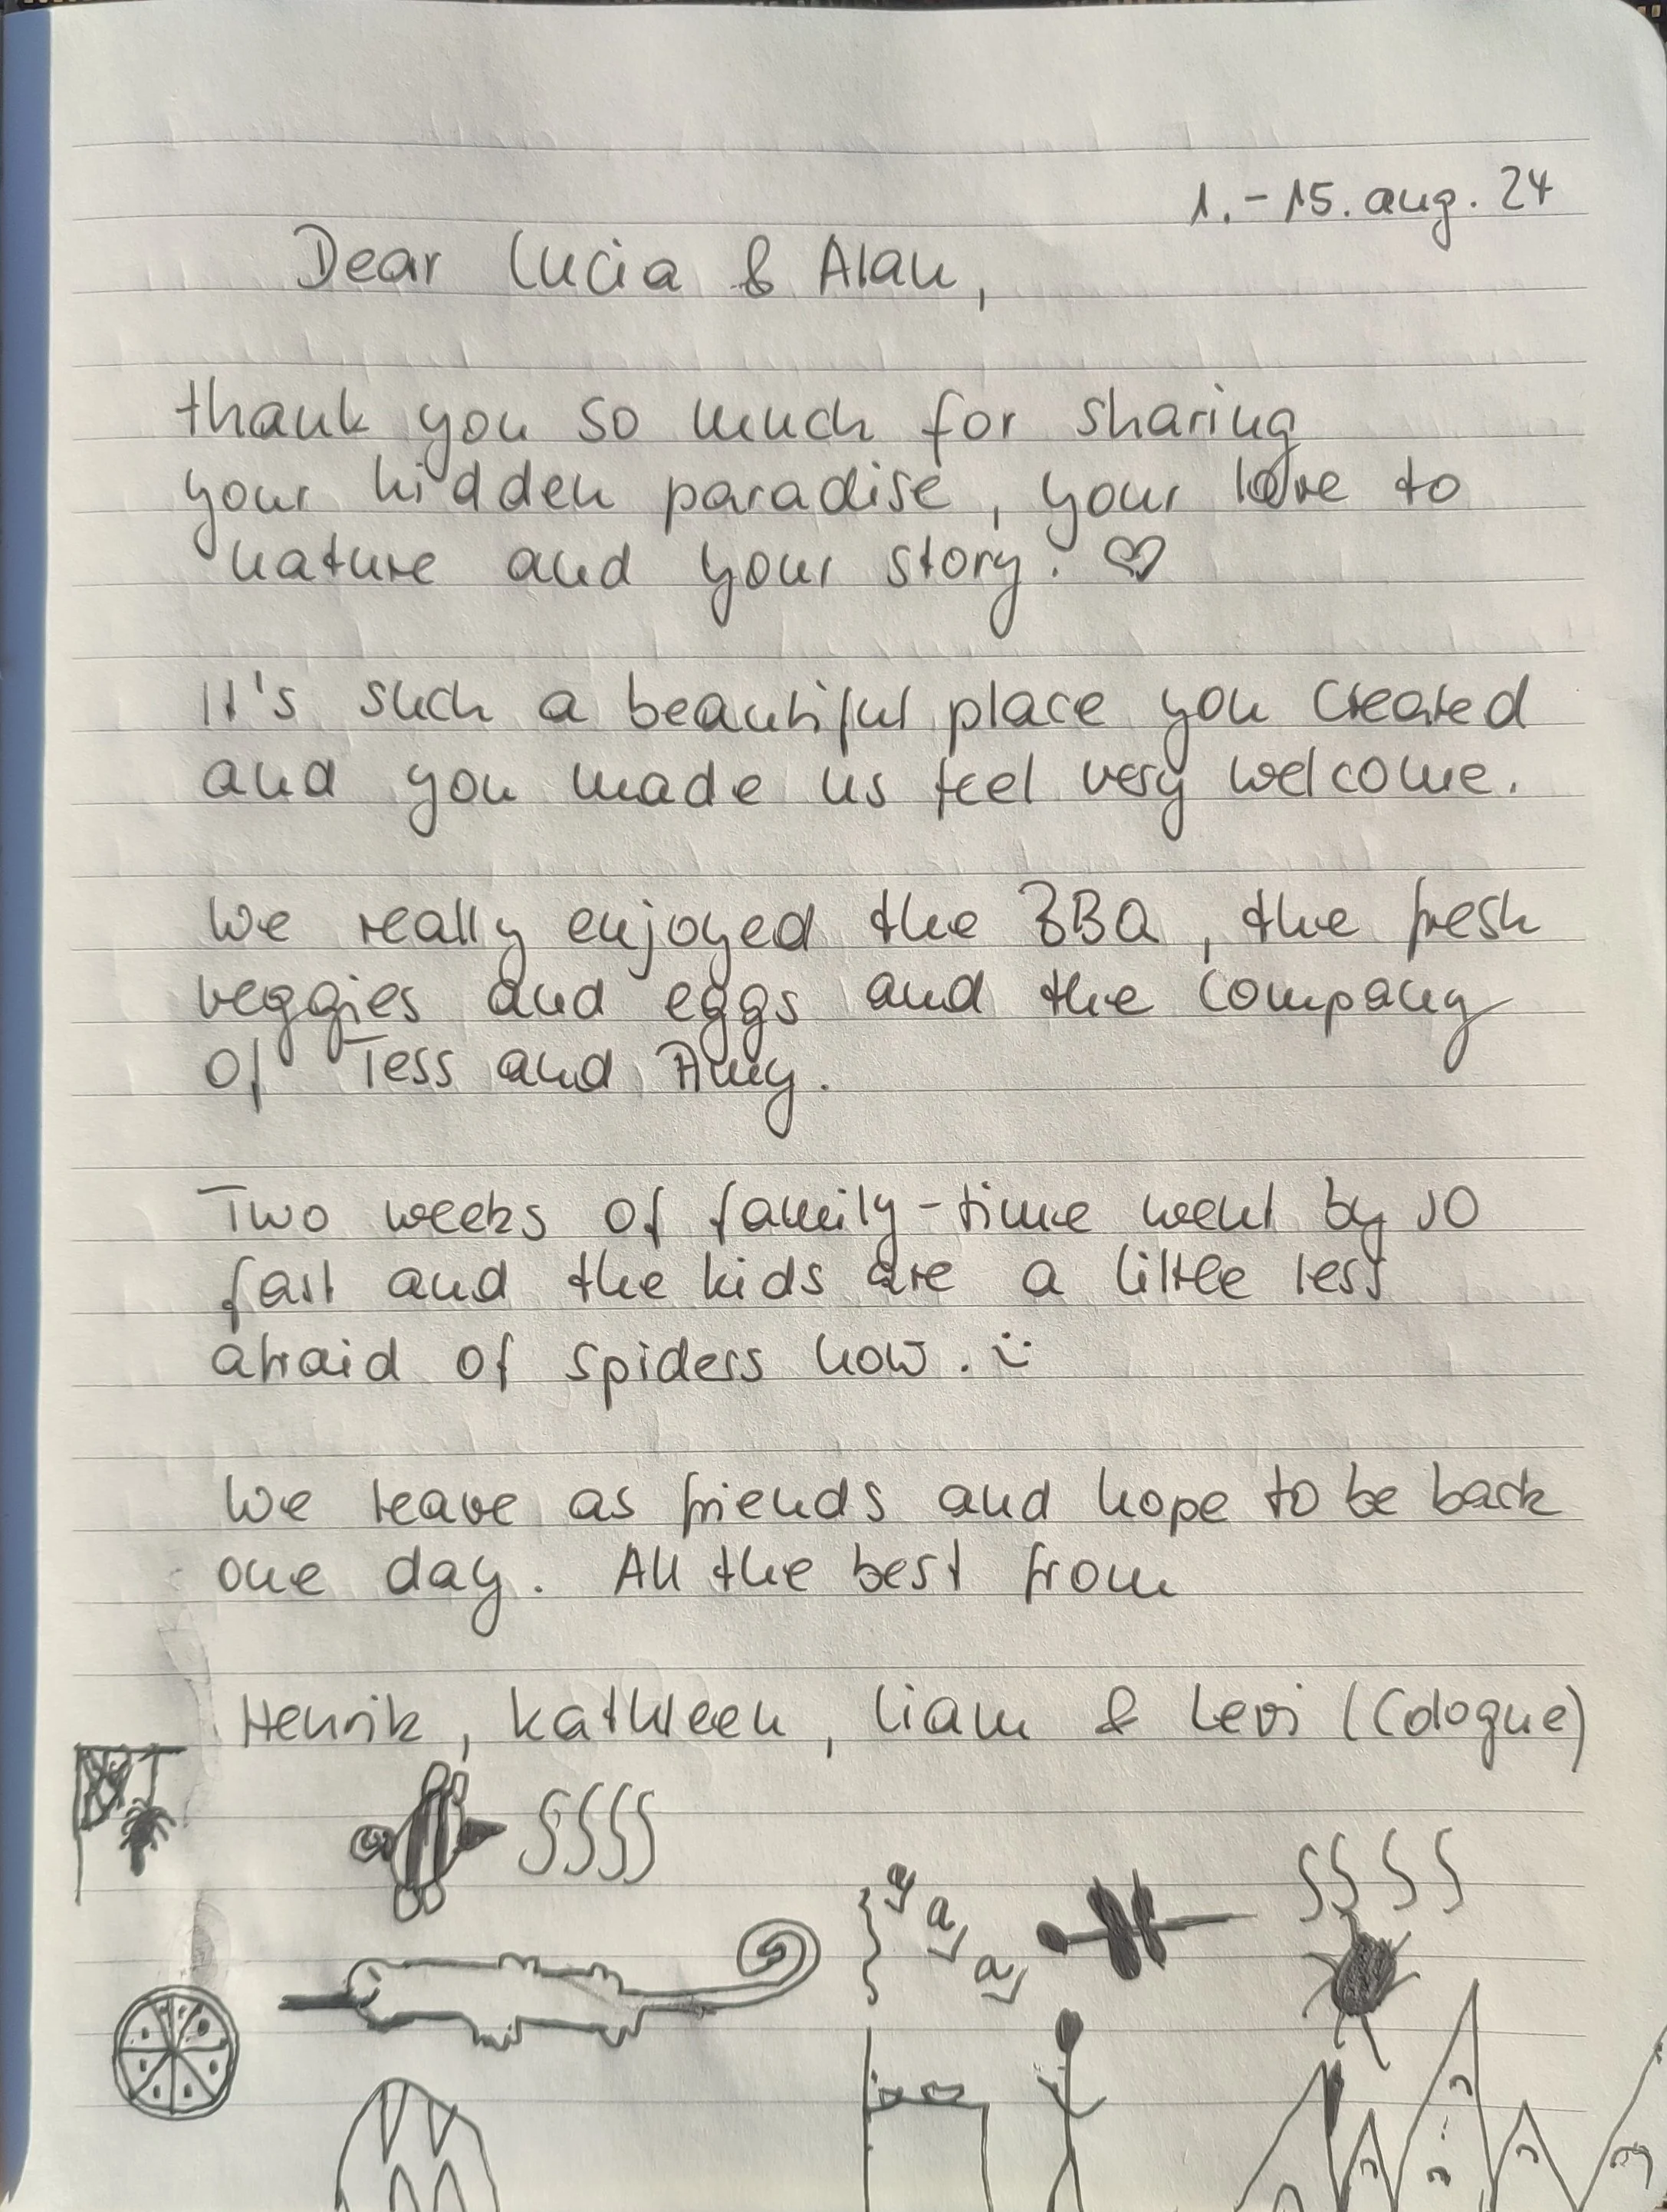 1.-15. aug. 24
Dear Lucia & Alan,
thank you so much for sharing
your hidden paradise, your love to
nature and your story. ♡
It's such a beautiful place you created
and you made us feel very welcome.
We really enjoyed the BBQ, the fresh
veggies and eggs and the company
of Tess and Amy.
Two weeks of family-time went by so
fast and the kids are a little less
afraid of spiders now. :)
We leave as friends and hope to be back
one day. All the best from
Henrik, Kathleen, Liam & Levi (Cologne)